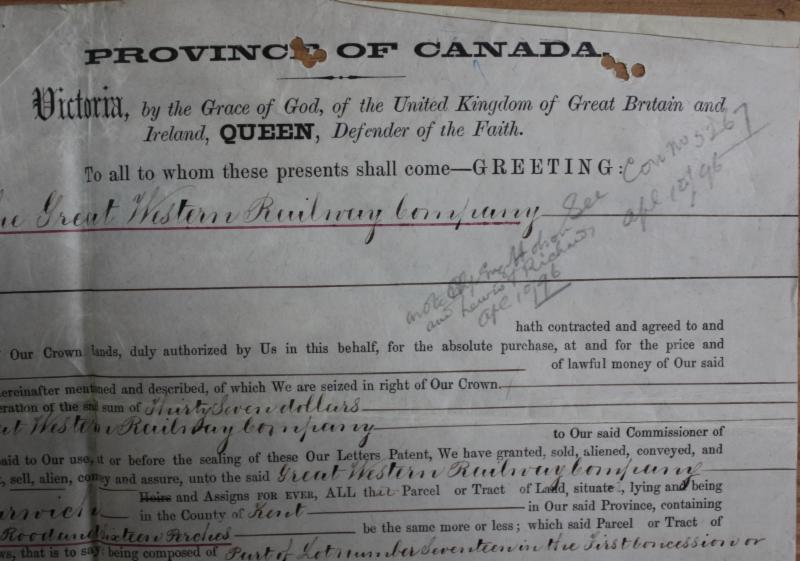 PROVINCE OF CANADA.
Victoria, by the Grace of God, of the United Kingdom of Great Britain and
Ireland, QUEEN, Defender of the Faith.
To all to whom these presents shall come—GREETING:
See Con No 5267
Apl 10/96
Great Western Railway Company
and Lewis & Richards
Apl 10/96
hath contracted and agreed to and
Our Crown lands, duly authorized by Us in this behalf, for the absolute purchase, at and for the price and
of lawful money of Our said
hereinafter mentioned and described, of which We are seized in right of Our Crown.
eration of the said sum of Thirty Seven dollars
at Western Railway Company
to Our said Commissioner of
paid to Our use, at or before the sealing of these Our Letters Patent, We have granted, sold, aliened, conveyed, and
, sell, alien, convey and assure, unto the said Great Western Railway Company
Heirs and Assigns FOR EVER, ALL that Parcel or Tract of Land, situate, lying and being
arwich in the County of Kent in Our said Province, containing
Rood and Sixteen Perches be the same more or less; which said Parcel or Tract of
ws, that is to say: being composed of Part of Lot number Seventeen in the First Concession or